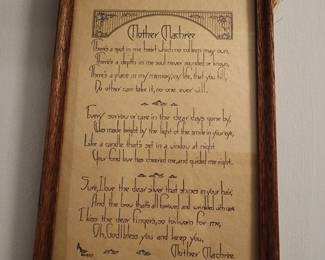 Mother Machree
There's a spot in me heart which no colleen may own,
There's a depth in me soul never sounded or known;
There's a place in my memory, my life, that you fill,
No other can take it, no one ever will.
Every sorrow or care in the dear days gone by,
Was made bright by the light of the smile in your eye,
Like a candle that's set in a window at night
Your fond love has cheered me, and guided me right.
Sure, I love the dear silver that shines in your hair,
And the brow that's all furrowed and wrinkled with care
I kiss the dear fingers, so toilworn for me,
Oh, God bless you and keep you,
Mother Machree.